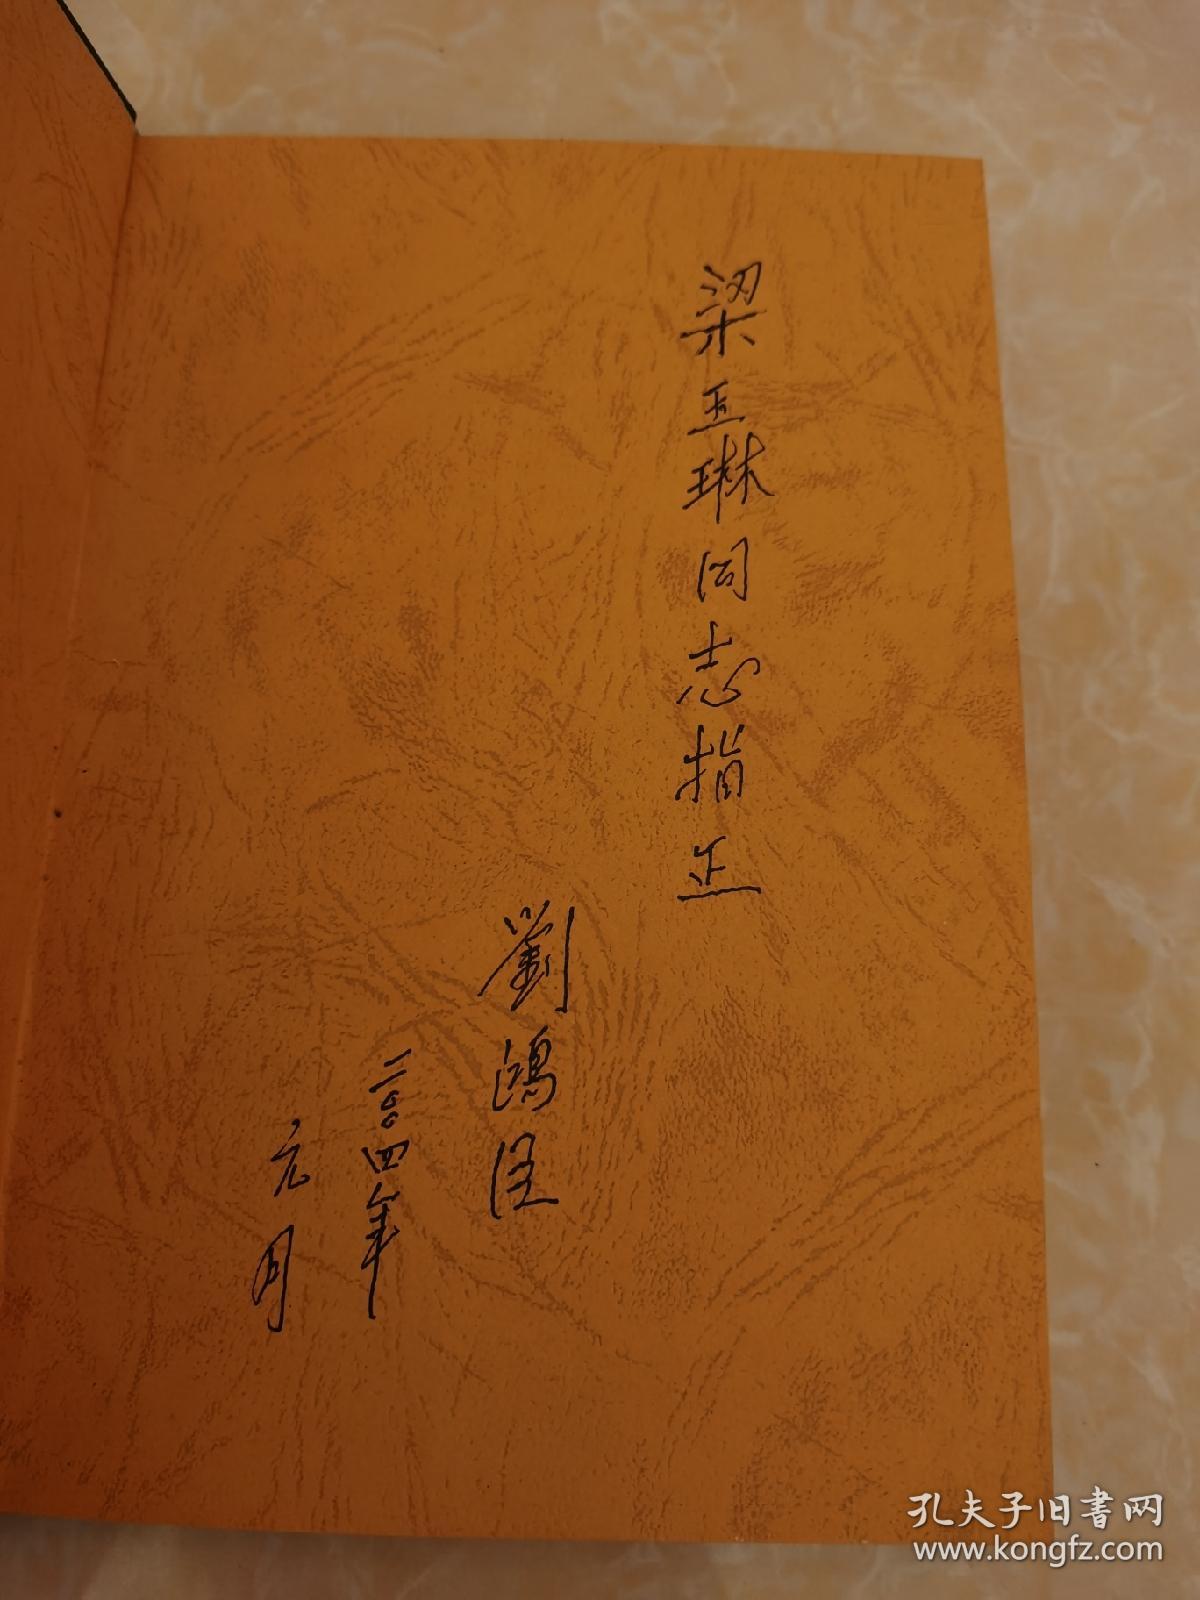 梁玉琳同志指正
劉鴻
二〇〇四年
元月
孔夫子旧書网
www.kongfz.com